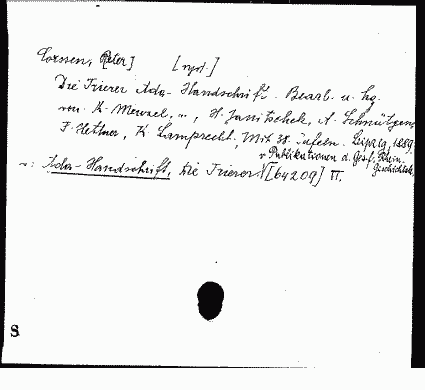 Corssen, Peter] [rpt.]
Die Trierer Ada-Handschrift. Bearb. u. hg.
von K. Menzel, ..., H. Janitschek, A. Schnütgen,
F. Hettner, K. Lamprecht, Mit 38 Tafeln. Leipzig, 1889.
v Publikationen d. Gesf. Rhein.
Geschichtsk.
~: Ada-Handschrift, Die Trierer √ [64209] II.
S